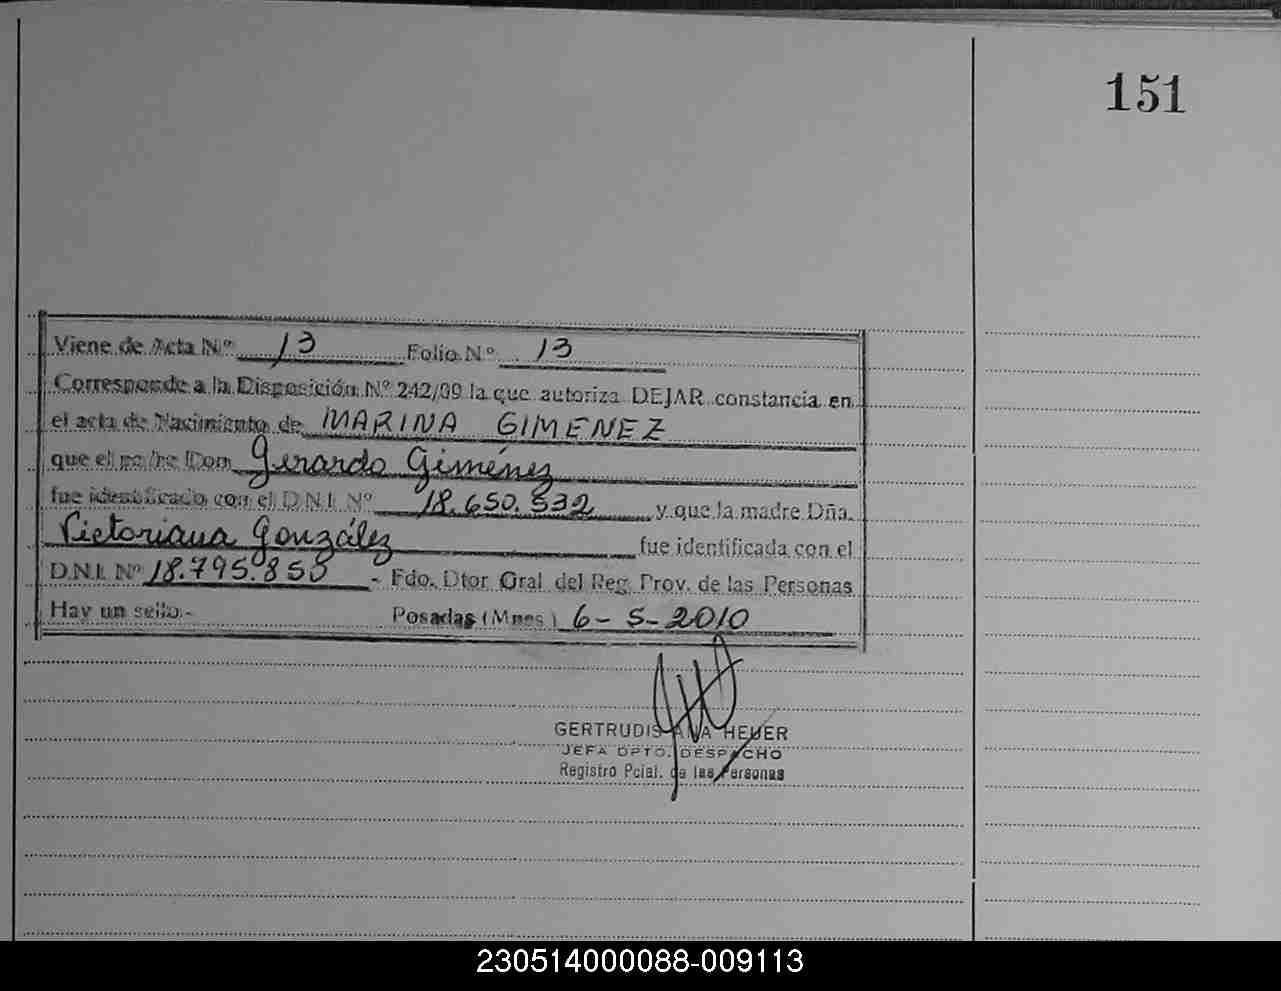 151
Viene de Acta Nº 13 Folio Nº 13
Corresponde a la Disposición Nº 242/09 la que autoriza DEJAR constancia en
el acta de Nacimiento de MARINA GIMENEZ
que el padre Don Gerardo Giménez
fue identificado con el D.N.I. Nº 18.650.532 y que la madre Dña.
Victoriana González fue identificada con el
D.N.I. Nº 18.795.853 - Fdo. Dtor Gral del Reg. Prov. de las Personas
Hay un sello.- Posadas (Mnes) 6-5-2010
GERTRUDIS ANA HEUER
JEFA DPTO. DESPACHO
Registro Pcial. de las Personas
230514000088-009113